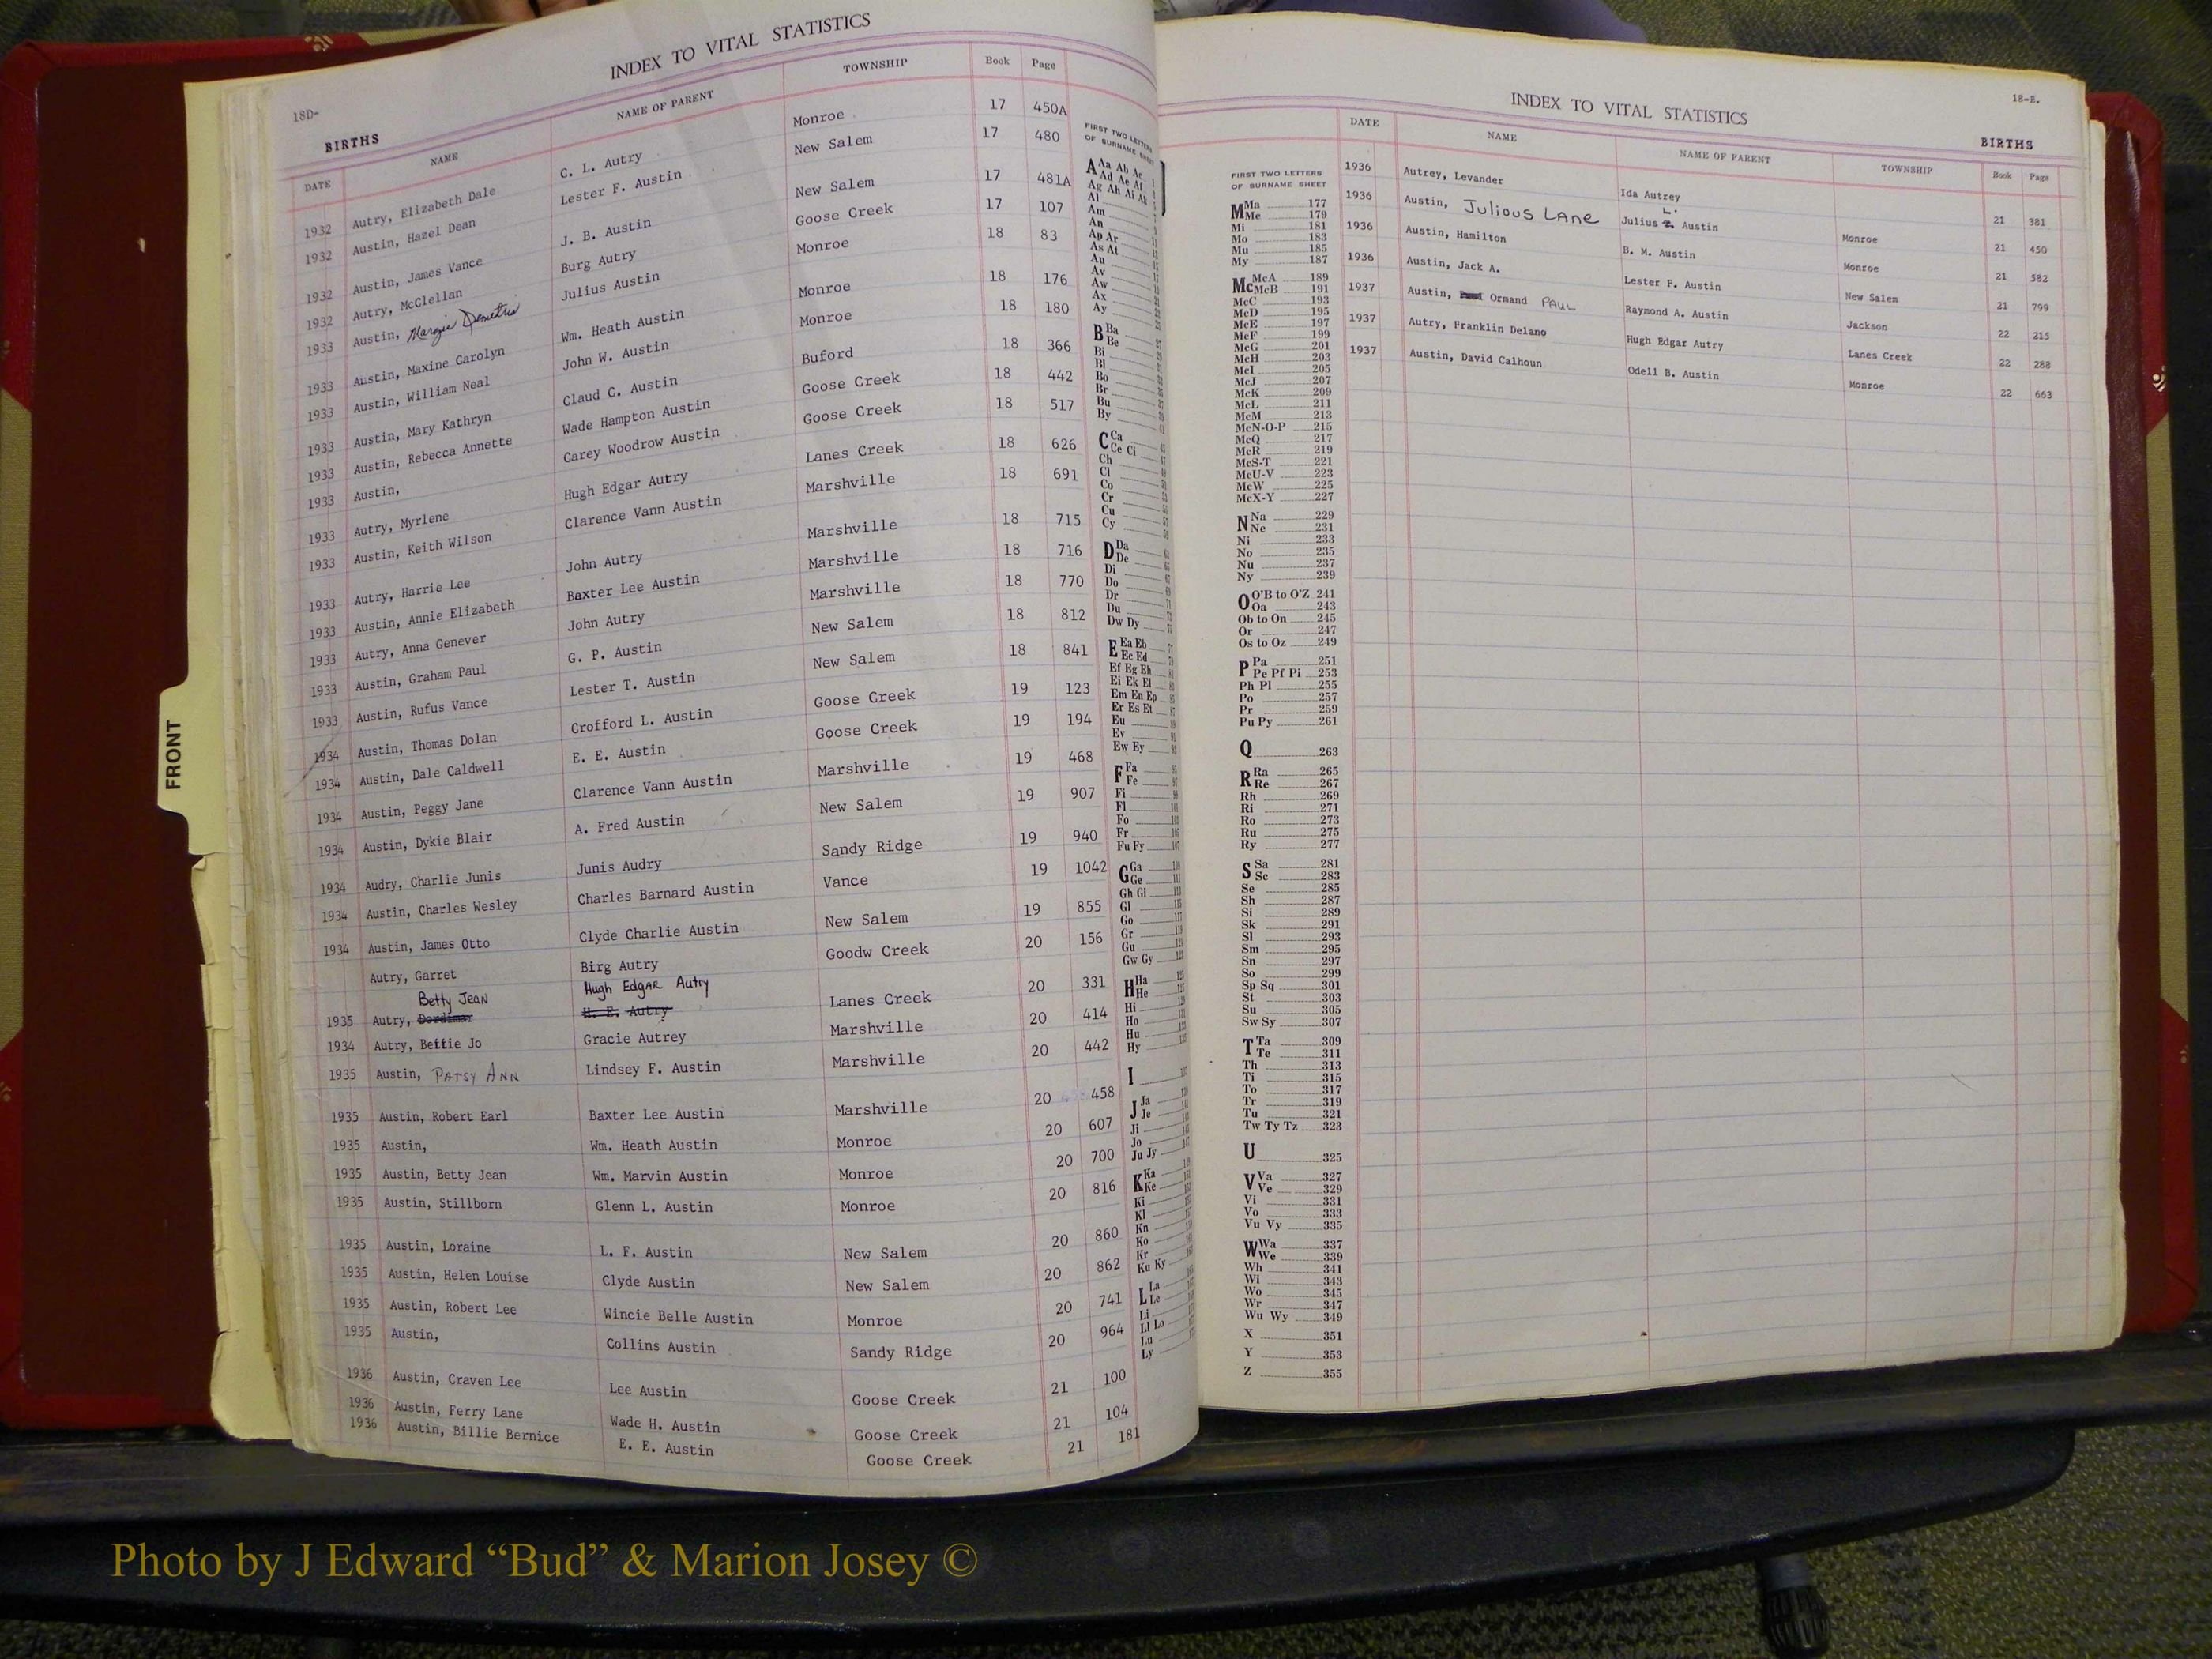 INDEX TO VITAL STATISTICS
18D-
BIRTHS
DATE NAME NAME OF PARENT TOWNSHIP Book Page
1932 Autry, Elizabeth Dale C. L. Autry Monroe 17 450A
1932 Austin, Hazel Dean Lester F. Austin New Salem 17 480
1932 Austin, James Vance J. B. Austin New Salem 17 481A
1932 Autry, McClellan Burg Autry Goose Creek 17 107
1933 Austin, Margie Demetris Julius Austin Monroe 18 83
1933 Austin, Maxine Carolyn Wm. Heath Austin Monroe 18 176
1933 Austin, William Neal John W. Austin Monroe 18 180
1933 Austin, Mary Kathryn Claud C. Austin Buford 18 366
1933 Austin, Rebecca Annette Wade Hampton Austin Goose Creek 18 442
1933 Austin, Carey Woodrow Austin Goose Creek 18 517
1933 Autry, Myrlene Hugh Edgar Autry Lanes Creek 18 626
1933 Austin, Keith Wilson Clarence Vann Austin Marshville 18 691
1933 Autry, Harrie Lee John Autry Marshville 18 715
1933 Austin, Annie Elizabeth Baxter Lee Austin Marshville 18 716
1933 Autry, Anna Genever John Autry Marshville 18 770
1933 Austin, Graham Paul G. P. Austin New Salem 18 812
1933 Austin, Rufus Vance Lester T. Austin New Salem 18 841
1934 Austin, Thomas Dolan Crofford L. Austin Goose Creek 19 123
1934 Austin, Dale Caldwell E. E. Austin Goose Creek 19 194
1934 Austin, Peggy Jane Clarence Vann Austin Marshville 19 468
1934 Austin, Dykie Blair A. Fred Austin New Salem 19 907
1934 Audry, Charlie Junis Junis Audry Sandy Ridge 19 940
1934 Austin, Charles Wesley Charles Barnard Austin Vance 19 1042
1934 Austin, James Otto Clyde Charlie Austin New Salem 19 855
Autry, Garret Birg Autry Goodw Creek 20 156
Betty Jean Hugh Edgar Autry
1935 Autry, H. E. Autry Lanes Creek 20 331
1934 Autry, Bettie Jo Gracie Autrey Marshville 20 414
1935 Austin, Patsy Ann Lindsey F. Austin Marshville 20 442
1935 Austin, Robert Earl Baxter Lee Austin Marshville 20 458
1935 Austin, Wm. Heath Austin Monroe 20 607
1935 Austin, Betty Jean Wm. Marvin Austin Monroe 20 700
1935 Austin, Stillborn Glenn L. Austin Monroe 20 816
1935 Austin, Loraine L. F. Austin New Salem 20 860
1935 Austin, Helen Louise Clyde Austin New Salem 20 862
1935 Austin, Robert Lee Wincie Belle Austin Monroe 20 741
1935 Austin, Collins Austin Sandy Ridge 20 964
1936 Austin, Craven Lee Lee Austin Goose Creek 21 100
1936 Austin, Ferry Lane Wade H. Austin Goose Creek 21 104
1936 Austin, Billie Bernice E. E. Austin Goose Creek 21 181
FIRST TWO LETTERS
OF SURNAME SHEET
A Aa Ab Ac
Ad Ae Af
Ag Ah Ai Ak
Al
Am
An
Ap Ar
As At
Au
Av
Aw
Ax
Ay
B Ba
Be
Bi
Bl
Bo
Br
Bu
By
C Ca
Ce Ci
Ch
Cl
Co
Cr
Cu
Cy
D Da
De
Di
Do
Dr
Du
Dw Dy
E Ea Eb
Ec Ed
Ef Eg Eh
Ei Ek El
Em En Ep
Er Es Et
Eu
Ev
Ew Ey
F Fa
Fe
Fi
Fl
Fo
Fr
Fu Fy
G Ga
Ge
Gh Gi
Gl
Go
Gr
Gu
Gw Gy
H Ha
He
Hi
Ho
Hu
Hy
I
J Ja
Je
Ji
Jo
Ju Jy
K Ka
Ke
Ki
Kl
Kn
Ko
Kr
Ku Ky
L La
Le
Li
Ll Lo
Lu
Ly
FRONT
INDEX TO VITAL STATISTICS
18-E.
BIRTHS
DATE NAME NAME OF PARENT TOWNSHIP Book Page
1936 Autrey, Levander Ida Autrey 21 381
L.
1936 Austin, Julious Lane Julius Austin Monroe 21 450
1936 Austin, Hamilton B. M. Austin Monroe 21 582
1936 Austin, Jack A. Lester F. Austin New Salem 21 799
1937 Austin, Ormand Paul Raymond A. Austin Jackson 22 215
1937 Autry, Franklin Delano Hugh Edgar Autry Lanes Creek 22 288
1937 Austin, David Calhoun Odell B. Austin Monroe 22 663
FIRST TWO LETTERS
OF SURNAME SHEET
M Ma 177
Me 179
Mi 181
Mo 183
Mu 185
My 187
Mc McA 189
McB 191
McC 193
McD 195
McE 197
McF 199
McG 201
McH 203
McI 205
McJ 207
McK 209
McL 211
McM 213
McN-O-P 215
McQ 217
McR 219
McS-T 221
McU-V 223
McW 225
McX-Y 227
N Na 229
Ne 231
Ni 233
No 235
Nu 237
Ny 239
O O'B to O'Z 241
Oa 243
Ob to On 245
Or 247
Os to Oz 249
P Pa 251
Pe Pf Pi 253
Ph Pl 255
Po 257
Pr 259
Pu Py 261
Q 263
R Ra 265
Re 267
Rh 269
Ri 271
Ro 273
Ru 275
Ry 277
S Sa 281
Sc 283
Se 285
Sh 287
Si 289
Sk 291
Sl 293
Sm 295
Sn 297
So 299
Sp Sq 301
St 303
Su 305
Sw Sy 307
T Ta 309
Te 311
Th 313
Ti 315
To 317
Tr 319
Tu 321
Tw Ty Tz 323
U 325
V Va 327
Ve 329
Vi 331
Vo 333
Vu Vy 335
W Wa 337
We 339
Wh 341
Wi 343
Wo 345
Wr 347
Wu Wy 349
X 351
Y 353
Z 355
Photo by J Edward “Bud” & Marion Josey ©